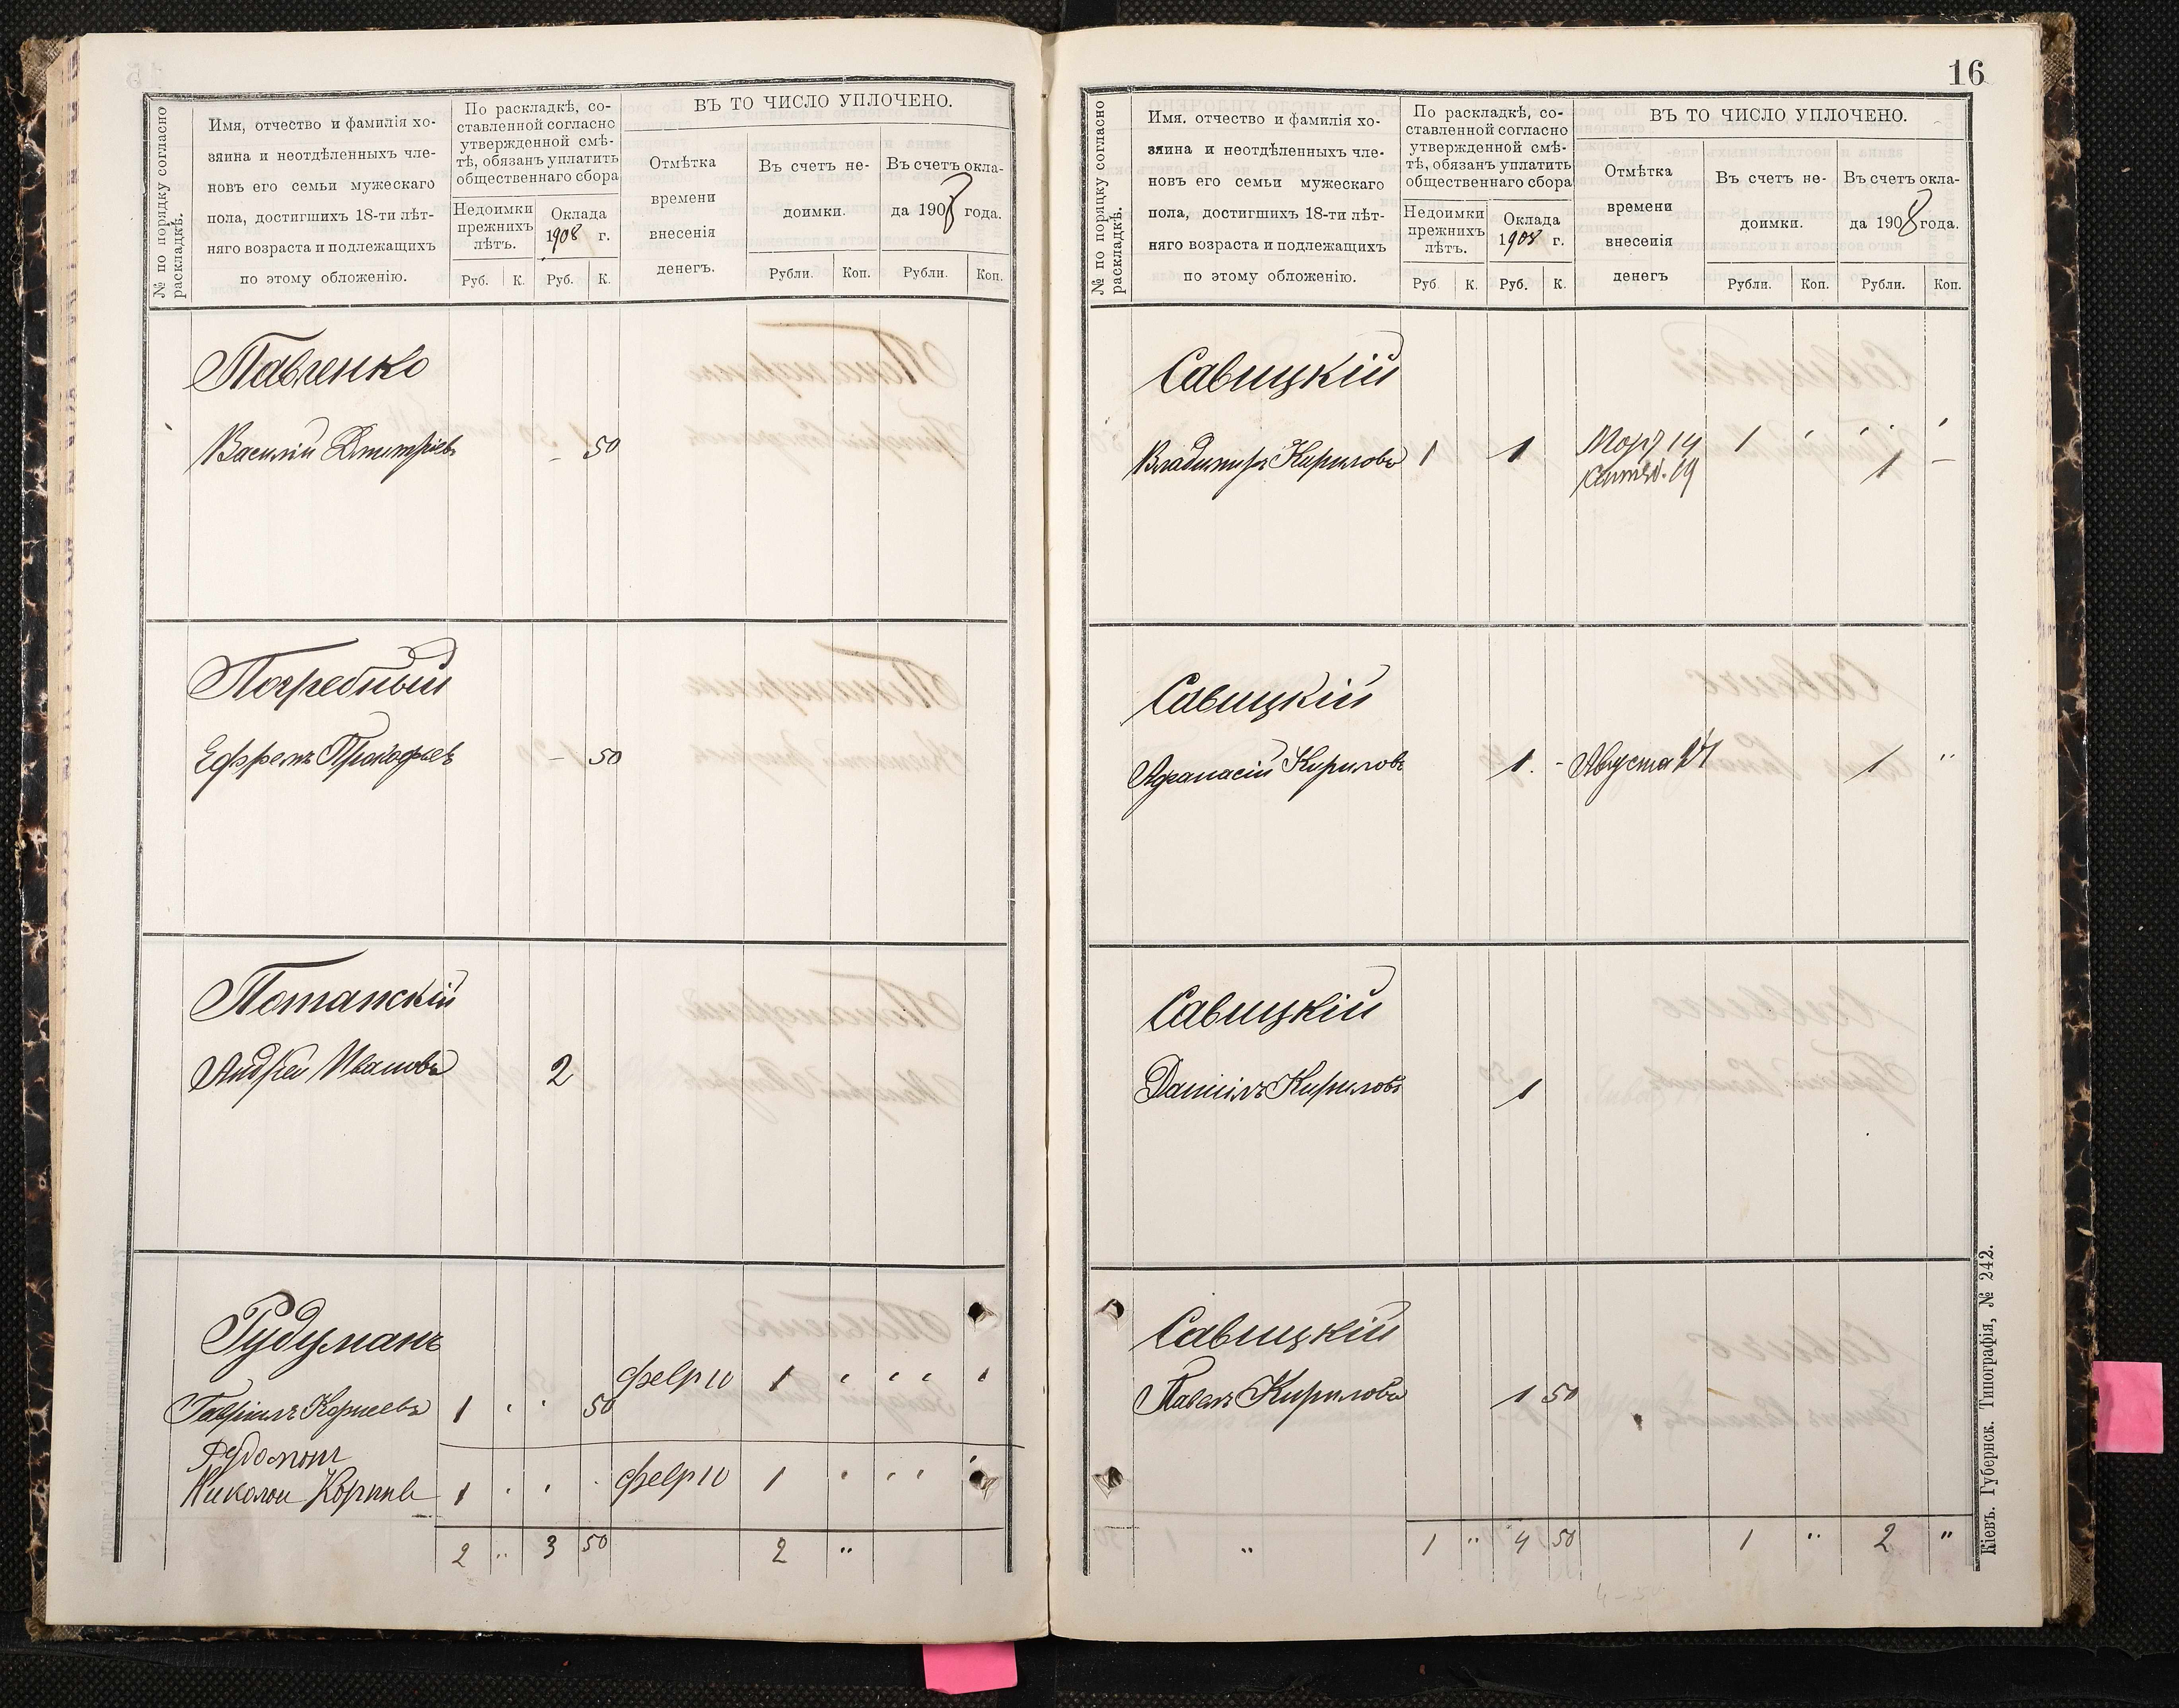 № по порядку согласно
раскладкѣ.
Имя, отчество и фамилія хо-
зяина и неотдѣленныхъ чле-
новъ его семьи мужескаго
пола, достигшихъ 18-ти лѣт-
няго возраста и подлежащихъ
по этому обложенію.
По раскладкѣ, со-
ставленной согласно
утвержденной смѣ-
тѣ, обязанъ уплатить
общественнаго сбора
Недоимки
прежнихъ
лѣтъ.
Оклада
1908 г.
Руб. К. Руб. К.
ВЪ ТО ЧИСЛО УПЛОЧЕНО.
Отмѣтка
времени
внесенія
денегъ.
Въ счетъ не-
доимки.
Въ счетъ окла-
да 1908 года.
Рубли. Коп. Рубли. Коп.
Павленко
Василій Дмитріевъ – 50
Погребный
Ефремъ Прокофьевъ – 50
Потапскій
Андрей Ивановъ 2
Рудуманъ
Гавріилъ Корнеевъ 1 " " 50 февр 10 1 " " " "
Николай Корнѣев 1 " " " февр 10 1 " " " "
2 " 3 50 2 "
16
№ по порядку согласно
раскладкѣ.
Имя. отчество и фамилія хо-
зяина и неотдѣленныхъ чле-
новъ его семьи мужескаго
пола, достигшихъ 18-ти лѣт-
няго возраста и подлежащихъ
по этому обложенію.
По раскладкѣ, со-
ставленной согласно
утвержденной смѣ-
тѣ, обязанъ уплатить
общественнаго сбора
Недоимки
прежнихъ
лѣтъ.
Оклада
1908 г.
Руб К. Руб. К.
ВЪ ТО ЧИСЛО УПЛОЧЕНО.
Отмѣтка
времени
внесенія
денегъ
Въ счетъ не-
доимки.
Въ счетъ окла-
да 1908 года.
Рубли. Коп. Рубли. Коп.
Савицкій
Владимиръ Кириловъ 1 1 Март 14 1 " " "
Сентяб. 19 1 –
Савицкій
Афанасій Кириловъ 1. - Августа 14 1 "
Савицкій
Даниилъ Кириловъ 1
Савицкій
Павелъ Кириловъ 1 50
" 1 " 4 50 1 " 2 "
Кіевъ. Губернск. Типографія, № 242.